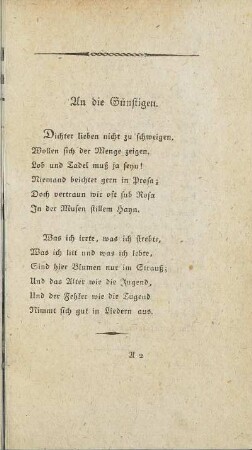 An die Günstigen.
Dichter lieben nicht zu schweigen,
Wollen sich der Menge zeigen,
Lob und Tadel muß ja seyn!
Niemand beichtet gern in Prosa;
Doch vertraun wir oft sub Rosa
In der Musen stillem Hayn.
Was ich irrte, was ich strebte,
Was ich litt und was ich lebte,
Sind hier Blumen nur im Strauß;
Und das Alter wie die Jugend,
Und der Fehler wie die Tugend
Nimmt sich gut in Liedern aus.
A 2